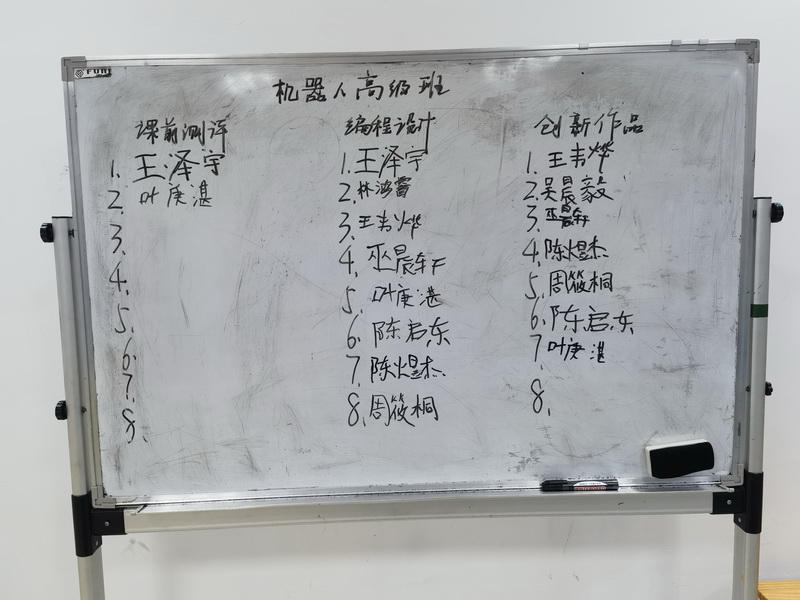 FUNI
机器人高级班
课前测评
1. 王泽宇
2. 叶庚湛
3.
4.
5.
6.
7.
8.
编程设计
1. 王泽宇
2. 林
3. 王韦烨
4. 巫晨轩
5. 叶庚湛
6. 陈启东
7. 陈煜杰
8. 周筱桐
创新作品
1. 王韦烨
2. 吴晨毅
3. 巫晨轩
4. 陈煜杰
5. 周筱桐
6. 陈启东
7. 叶庚湛
8.